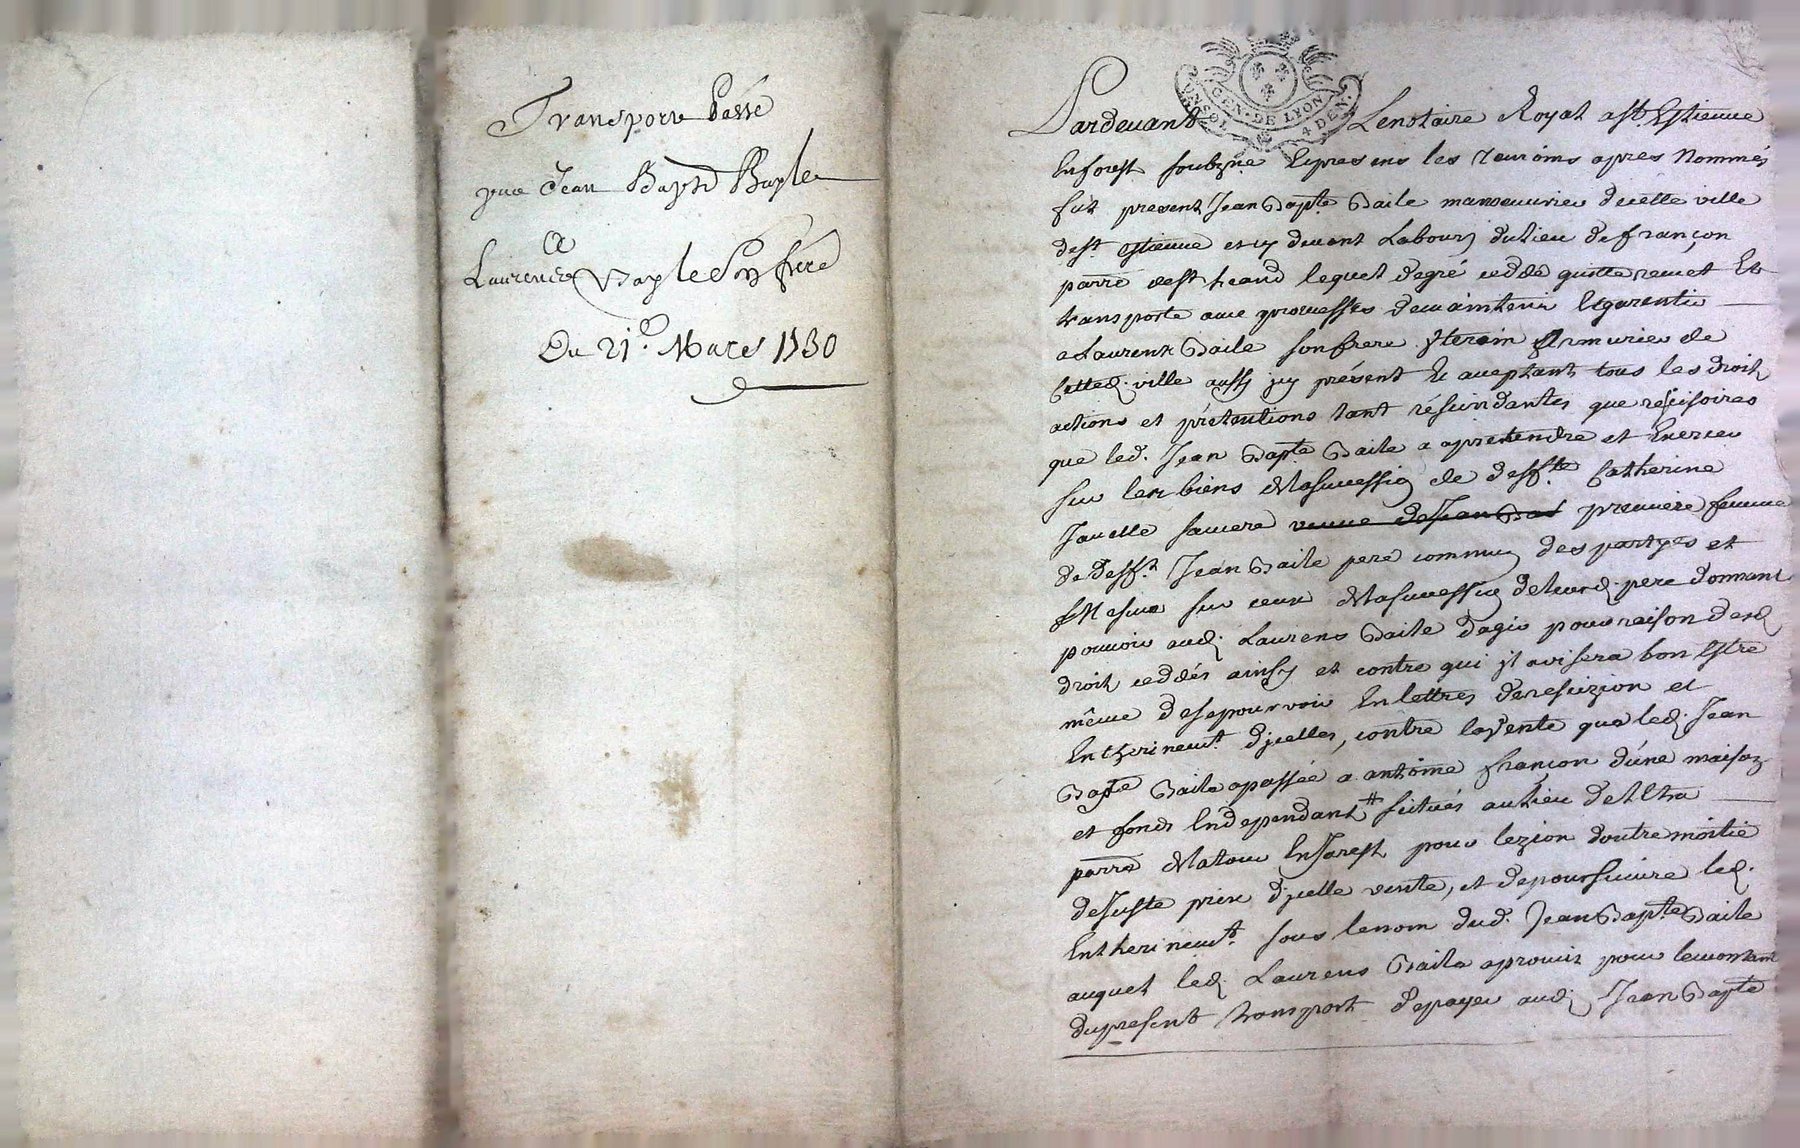 Transporte Passé
par Jean Bapte Bayle
a
Laurence Bayle Son frere
Du 21e. Mars 1730
GEN. DE LYON
4 DEN.
Pardevant Lenotaire Royal a St. Estienne
Enforest soubzne. Expresens les temoins apres Nommés
fut present Jean Bapte. Baile manoeuvrier decette ville
de st. Estienne et cy devant Laboure dulieu defrançon
parre de st heand lequel degré cedde quitte remet Et
transporte avec promesses demaintenir Egarentir
a Laurent Baile sonfrere Armurier de
Cetted. ville aussy jcy présent Et aceptant tous les droit
actions et prétentions tant résindantes que resisoires
que led. Jean Bapte Baile a apretendre et Exercer
sur les biens et lasucessio de deffte. Catherine
Javelle samere veuve deJean Bat premiere femme
de deft. Jean Baile pere commun des partyes et
sur ceux et lasucession deleurd. pere donnant
pouvoir aud. Laurens Baile dagir pour raison desd
droit ceddés ainsy et contre qui jl avisera bon Estre
même desepourvoir En lettres derescizion et
Entherinemt. djcelles, contre lavente que led. Jean
Bapte Baile apassée a antoine françon d'une maison
et fonds Endependant # scitués aulieu de
parre Enforest pour lezion doutre moitié
dejuste prix djcelle vente, et depoursuivre led.
Entherinemt. sous lenom dud. Jean Bapte Baile
auquel led. Laurens Baile apromis pour lemontant
dupresent transport depayer aud. Jean Bapte